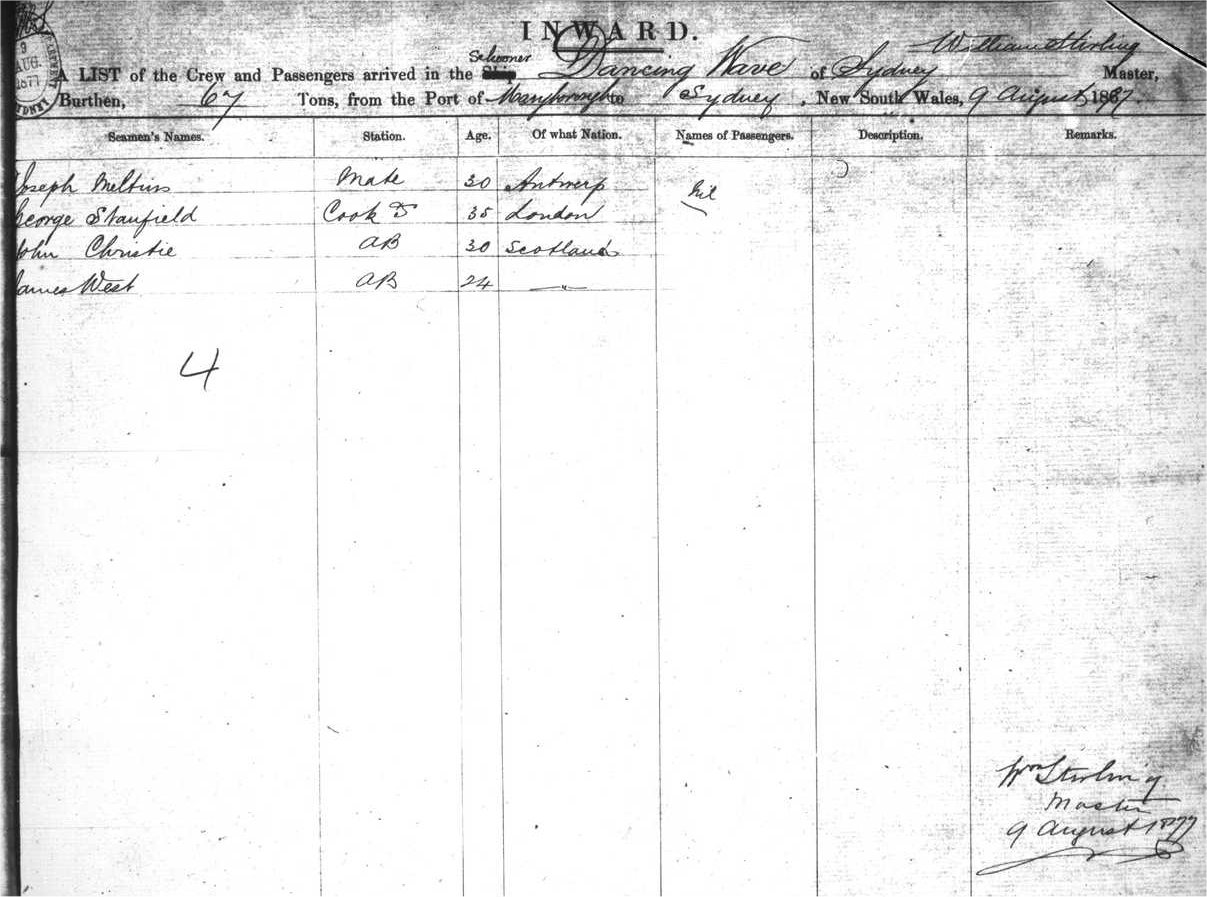 INWARD.
9
AUG.
1877
Schooner William Stirling
A LIST of the Crew and Passengers arrived in the Ship Dancing Wave of Sydney Master,
Burthen, 67 Tons, from the Port of Maryborough to Sydney, New South Wales, 9 August 1877.
Seamen's Names. Station. Age. Of what Nation. Names of Passengers. Description. Remarks.
Joseph Mate 30 Antwerp Nil
George Stanfield Cook & S 35 London
John Christie AB 30 Scotland
James West AB 24 — " —
4
Wm Stirling
Master
9 August 1877